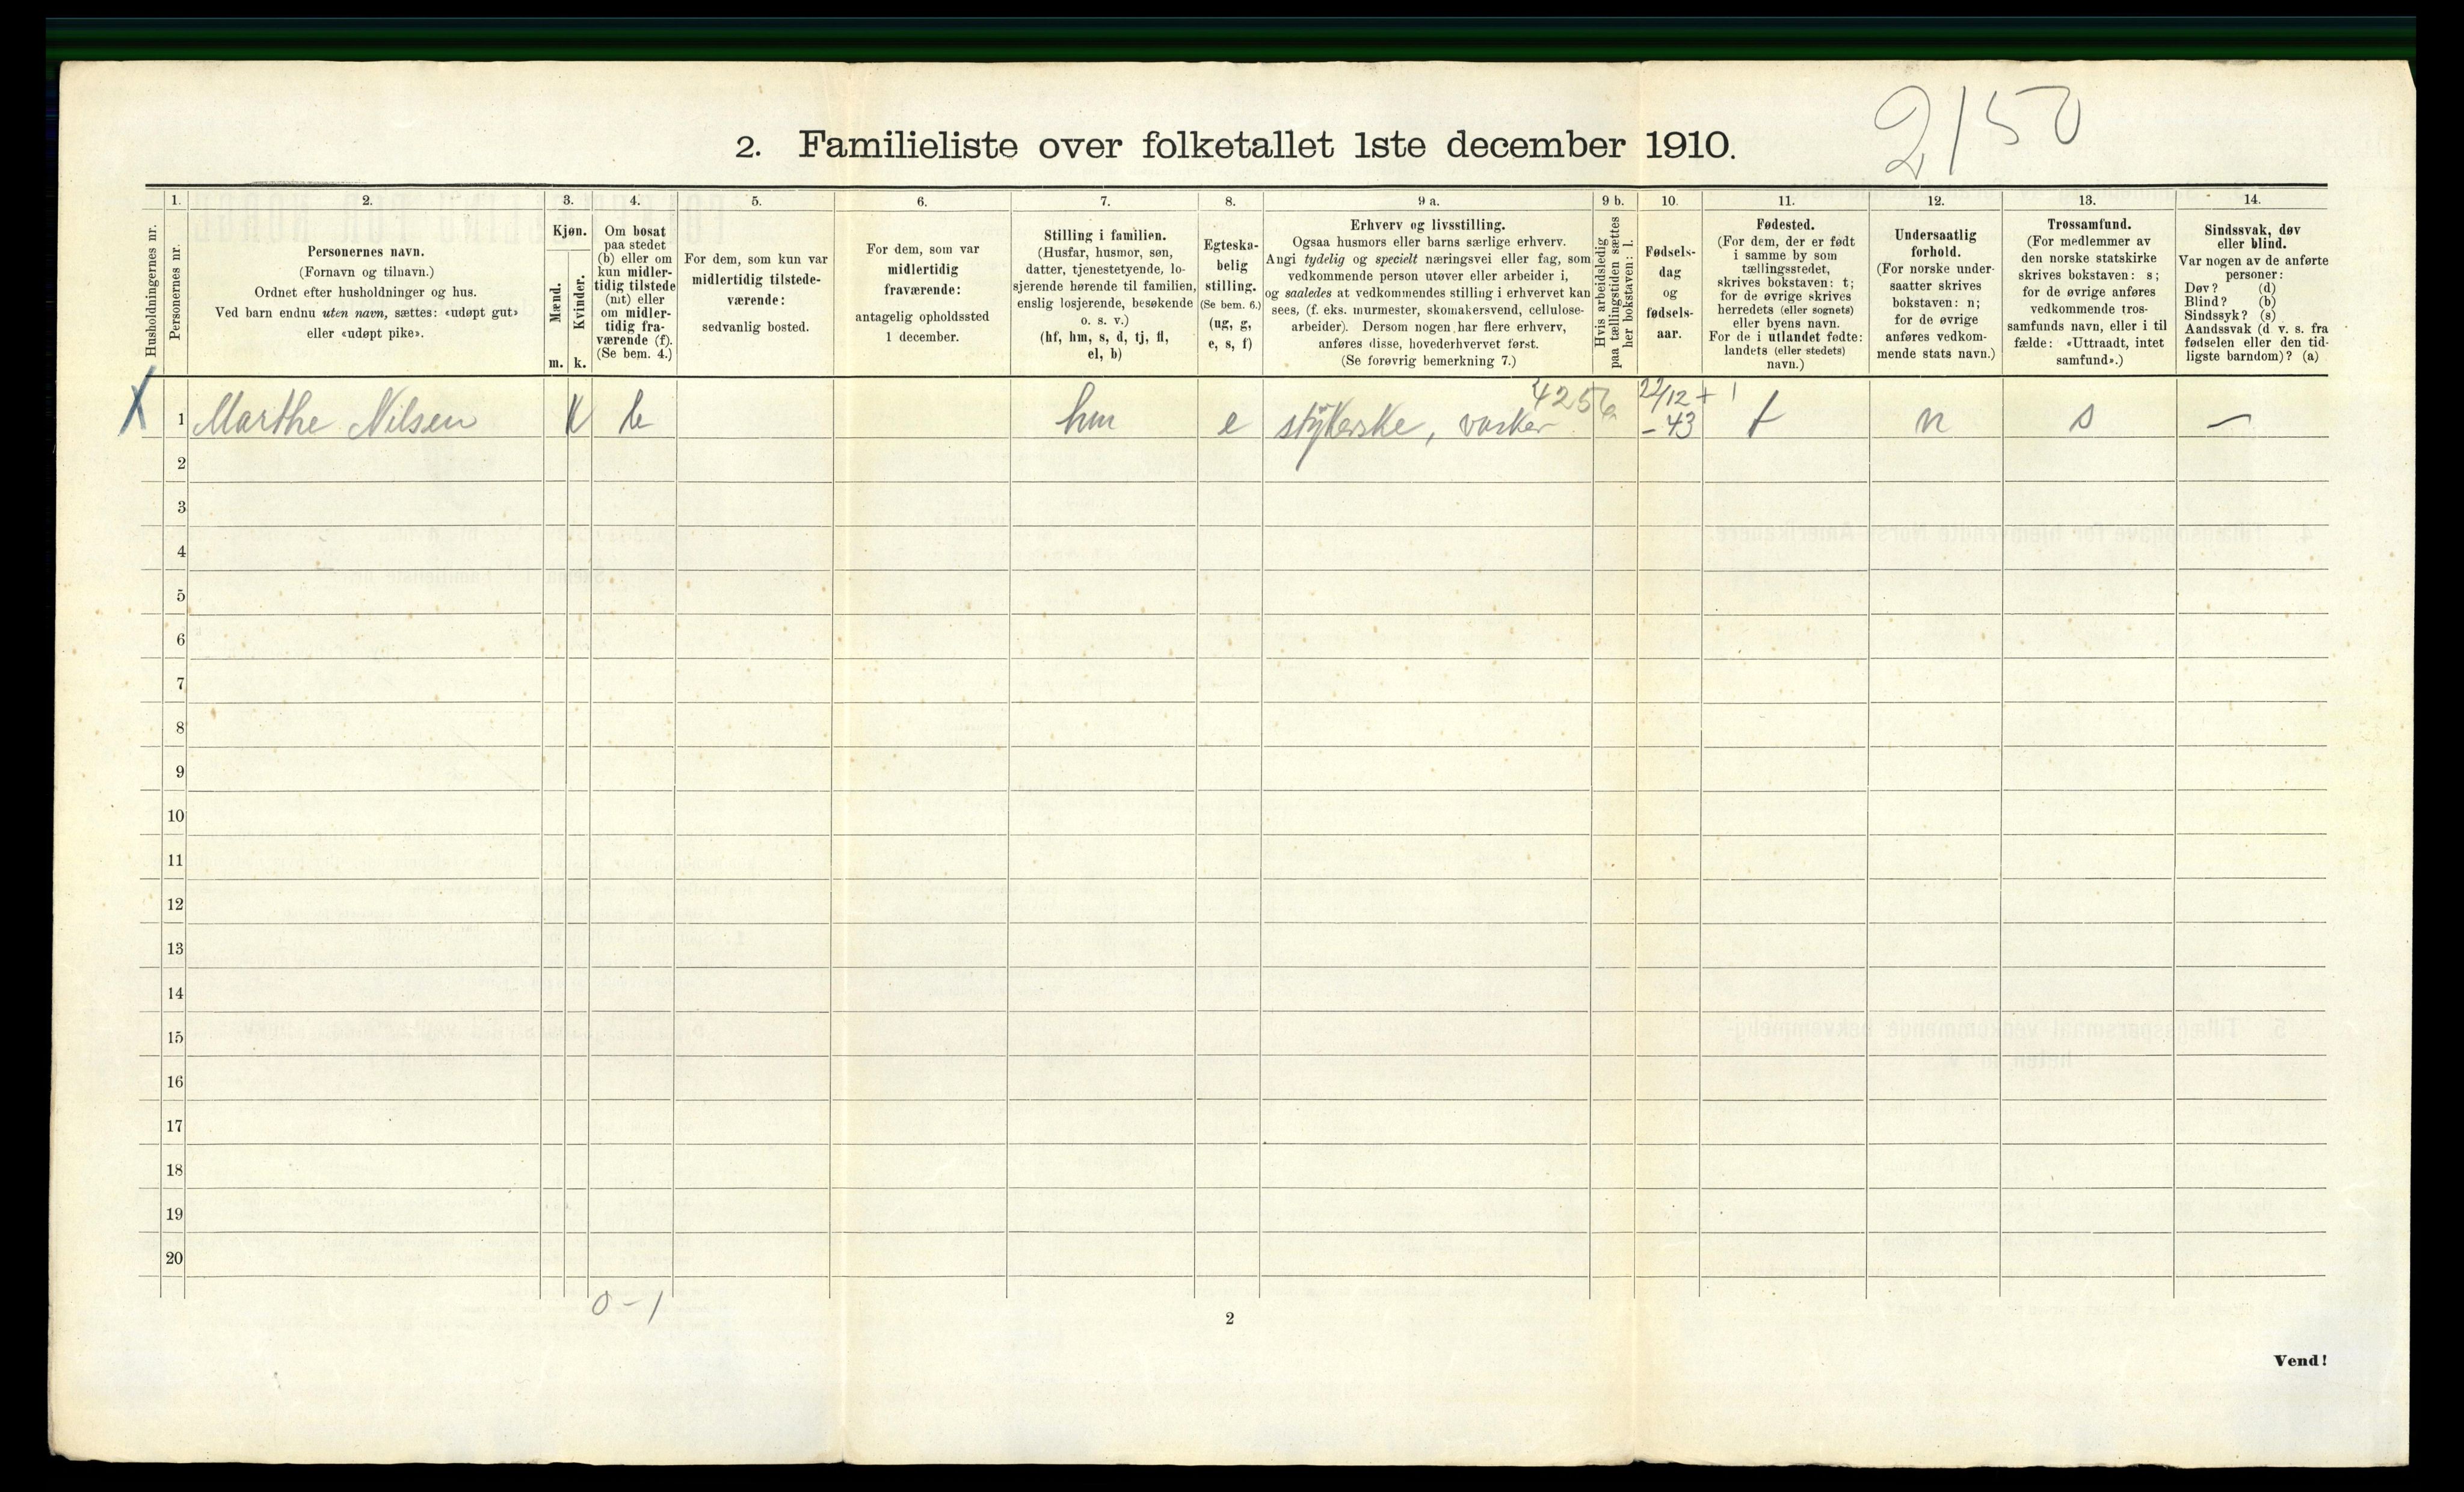 2150
2. Familieliste over folketallet 1ste december 1910.
Husholdningernes nr.
1.
Personernes nr.
2.
Personernes navn.
(Fornavn og tilnavn.)
Ordnet efter husholdninger og hus.
Ved barn endnu uten navn, sættes: «udøpt gut»
eller «udøpt pike».
3.
Kjøn.
Mænd.
m.
Kvinder.
k.
4.
Om bosat
paa stedet
(b) eller om
kun midler-
tidig tilstede
(mt) eller
om midler-
tidig fra-
værende (f).
(Se bem. 4.)
5.
For dem, som kun var
midlertidig tilstede-
værende:
sedvanlig bosted.
6.
For dem, som var
midlertidig
fraværende:
antagelig opholdssted
1 december.
7.
Stilling i familien.
(Husfar, husmor, søn,
datter, tjenestetyende, lo-
sjerende hørende til familien,
enslig losjerende, besøkende
o. s. v.)
(hf, hm, s, d, tj, fl,
el, b)
8.
Egteska-
belig
stilling.
(Se bem. 6.)
(ug, g,
e, s, f)
9 a.
Erhverv og livsstilling.
Ogsaa husmors eller barns særlige erhverv.
Angi tydelig og specielt næringsvei eller fag, som
vedkommende person utøver eller arbeider i,
og saaledes at vedkommendes stilling i erhvervet kan
sees, (f. eks. murmester, skomakersvend, cellulose-
arbeider). Dersom nogen har flere erhverv,
anføres disse, hovederhvervet først.
(Se forøvrig bemerkning 7.)
9 b.
Hvis arbeidsledig
paa tællingstiden sættes
her bokstaven: l.
10.
Fødsels-
dag
og
fødsels-
aar.
11.
Fødested.
(For dem, der er født
i samme by som
tællingsstedet,
skrives bokstaven: t;
for de øvrige skrives
herredets (eller sognets)
eller byens navn.
For de i utlandet fødte:
landets (eller stedets)
navn.)
12.
Undersaatlig
forhold.
(For norske under-
saatter skrives
bokstaven: n;
for de øvrige
anføres vedkom-
mende stats navn.)
13.
Trossamfund.
(For medlemmer av
den norske statskirke
skrives bokstaven: s;
for de øvrige anføres
vedkommende tros-
samfunds navn, eller i til
fælde: «Uttraadt, intet
samfund».)
14.
Sindssvak, døv
eller blind.
Var nogen av de anførte
personer:
Døv? (d)
Blind? (b)
Sindssyk? (s)
Aandssvak (d v. s. fra
fødselen eller den tid-
ligste barndom)? (a)
4256 22/12 + 1
X 1 Marthe Nilsen K b hm e strykerske, vasker -43 t n s —
2
3
4
5
6
7
8
9
10
11
12
13
14
15
16
17
18
19
20
0-1
2
Vend!